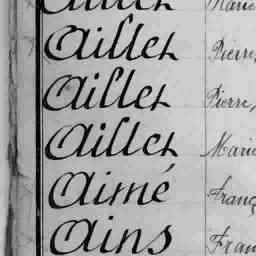 Aillet Marie
Aillet Pierre,
Aillet Pierre,
Aillet Marie
Aimé Franç
Ains Fran